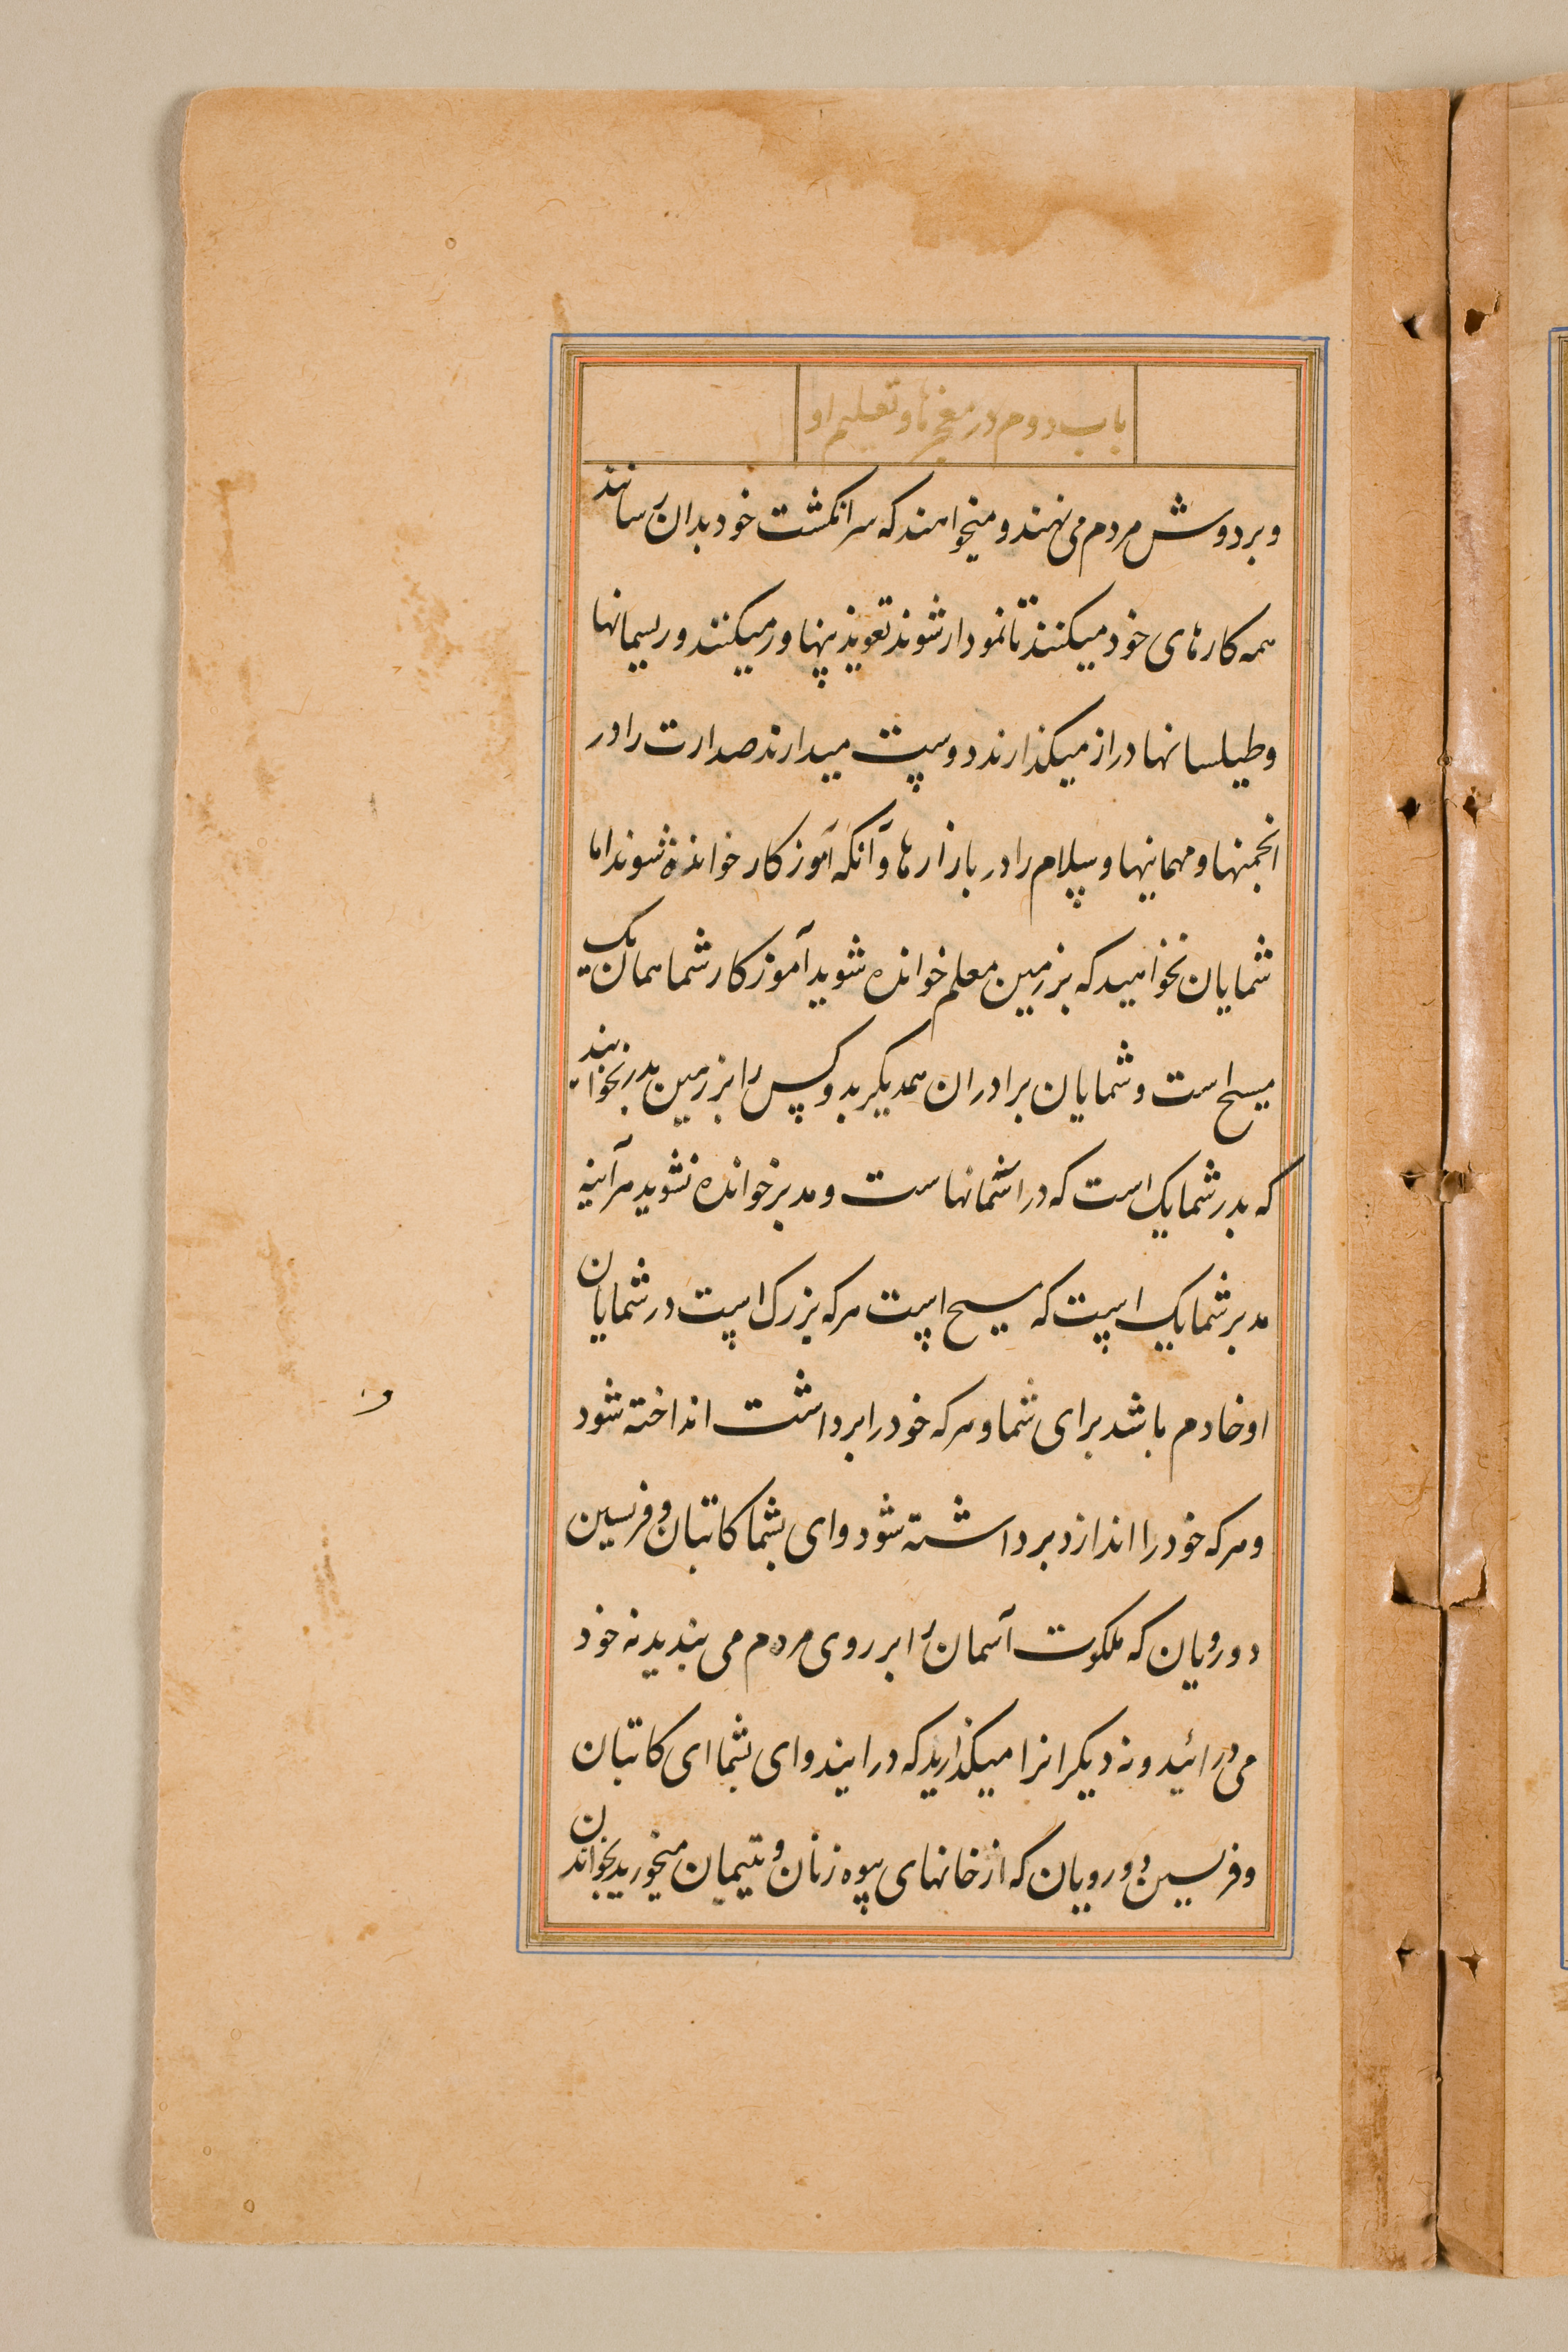 باب دوم در معجزها و تعلیم او
و بر دوش مردم می نهند و نمیخواهند که سر انکشت خود بدان رسانند
همه کارهای خود میکنند تا نمودار شوند تعویذ پهناور میکنند و ریسمانها
و طیلسانها دراز میکذارند دوست میدارند صدارت را در
انجمنها و مهمانیها و سلام را در بازارها و آنکه آموزکار خوانده شوند اما
شمایان نخواهید که بر زمین معلم خوانده شوید آموزکار شما همان یک
مسیح است و شمایان برادران همدیکرید و کس را بر زمین پدر نخوانید
که پدر شما یک است که در اسمانهاست و مدبر خوانده نشوید هرآینه
مدبر شما یک است که مسیح است هرکه بزرک است در شمایان
او خادم باشد برای شما و هرکه خود را برداشت انداخته شود
و هرکه خود را اندازد برداشته شود وای بشما کاتبان و فرسین
دورویان که ملکوت آسمان را بر روی مردم می بندید نه خود
می درائید و نه دیکرانرا میکذارید که درایند وای بشما ای کاتبان
و فرسین دورویان که از خانهای بیوه زنان و یتیمان میخورید بخواندن